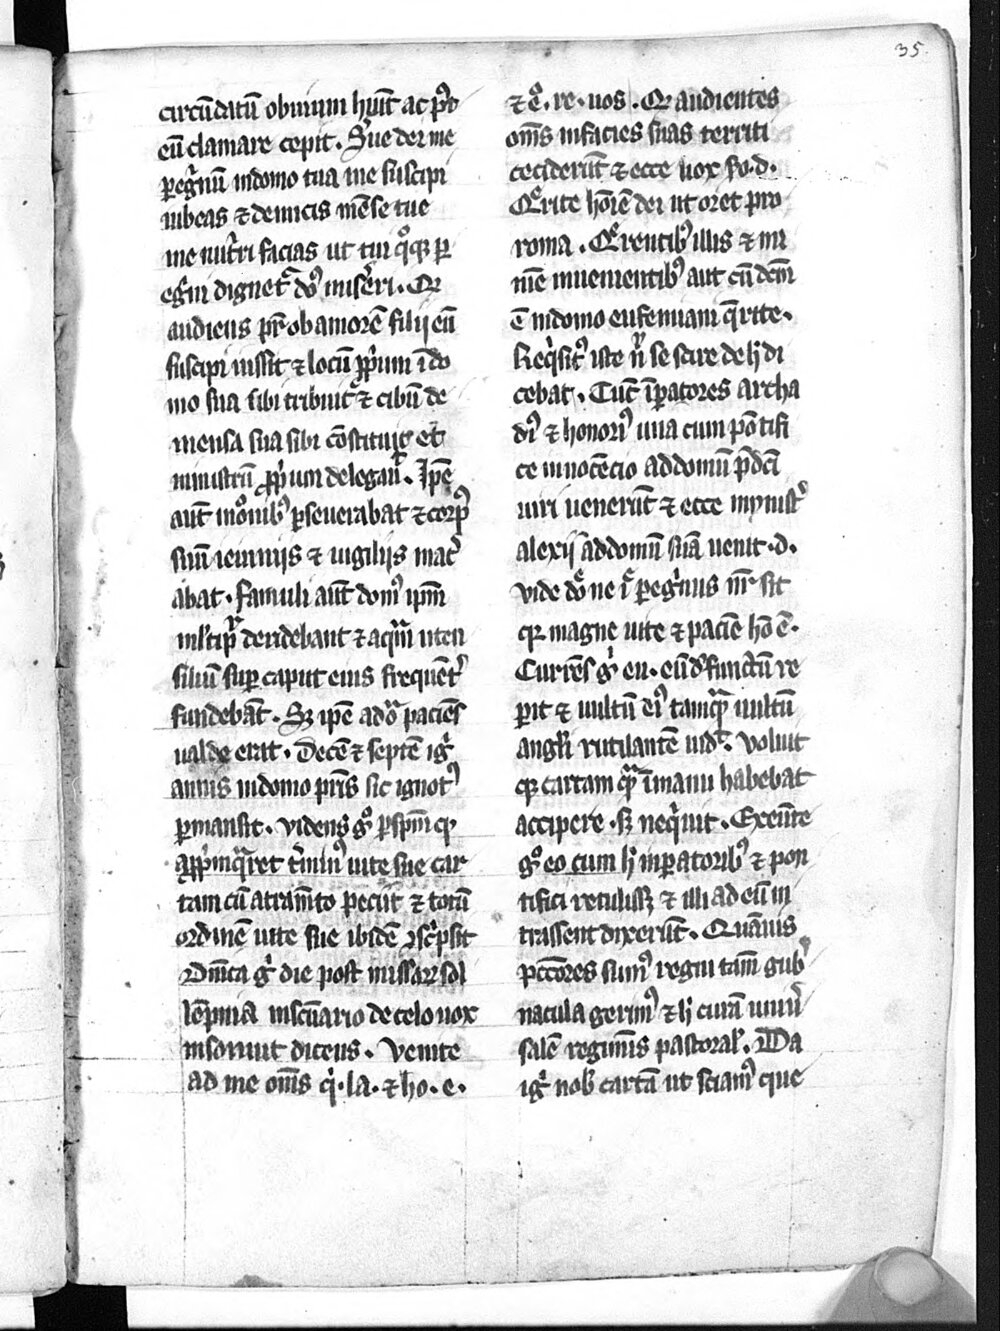 35.
circūdatū obuium huīt ac pꝰt
eū clamare cepit. Sue dei me
ꝑegͥnū in domo tua me suscipi
iubeas ⁊ de micis mēse tue
me nutͥri facias ut tui qͦqꝫ ꝑ
egͥni dignetͬ dꝰ miseͬri. Qͫ
audiens pr̄ ob amorē filij eū
suscipi iussit ⁊ locū ꝓpͥum ī do
mo sua sibi tribuit ⁊ cibū de
mensa sua sibi cōstituit et
ministrū ꝓpͥum delegauͭ. Ipē
aūt ī oͬonibꝰ ꝑseuerabat ⁊ corpꝰ
suū ieiunijs ⁊ uigilijs maceͬ
abat. famuli aūt domꝰ ipm̄
mltipͬ deridebant ⁊ aqͣm uten
siliū suꝑ caput eius frequētͬ
fundebāt. Sꝫ ipē ad oͣ paciēs
ualde erat. Decē ⁊ septē igͬ
annis in domo pr̄is sic ignotꝰ
ꝑmansit. videns gͦ ꝑ spm̄ qꝫ
aꝓpͥnqͣret tͬminꝰ uite sue car
tam cū atramͤto peciit ⁊ totū
ordinē uite sue ibidē ꝯscͥpsit
Dn̄ica gͥ die post missaꝝ sol
lēpnia in scūario de celo uox
insonuit dicens. Venite
ad me om̄s qͥ. la. ⁊ ho. e.
⁊ eͦ. re. uos. Qͫ audientes
om̄s in facies suas territi
cecideruͭt ⁊ ecce uox scͦ. d.
Qͤrite hoīem dei ut oret pro
roma. Qͤrentibꝰ illis ⁊ mi
nīe inuenientibꝰ aut cū dcm̄
ē in domo eufemiani qͤrite.
Reqͥsitꝰ iste nͥ se scire de hͨ di
cebat. Tūc īꝑatores archa
diꝰ ⁊ honoriꝰ una cum pōtifi
ce innocēcio ad domū p̄dc̄i
uiri uenerūt ⁊ ecce mynistͬ
alexij ad domū suā uenit. d.
vide dōe ne iͤ ꝑegͥnus nr̄ sit
qꝫ magne uite ⁊ paciēe hō ē.
Currēs gͦ eu. eū defunctū re
ꝑit ⁊ uultū eiꝰ tamqͣm uultū
angͤli rutilantē uidͭ. Voluit
qꝫ cartam qͣm ī manu habebat
accipere. sꝫ neqͥuit. Exeūte
gͦ eo cum hͨ inꝑatoribꝰ ⁊ pon
tifici retulissꝫ ⁊ illi ad eū in
trassent dixerūt. Quāuis
pcc̄ores sumꝰ regni tam̄ gubͬ
nacula gerimꝰ ⁊ hͨ curā uniuͬ
salē regiminis pastoralͥ. Da
igͬ nobͥ cartā ut sciamꝰ que